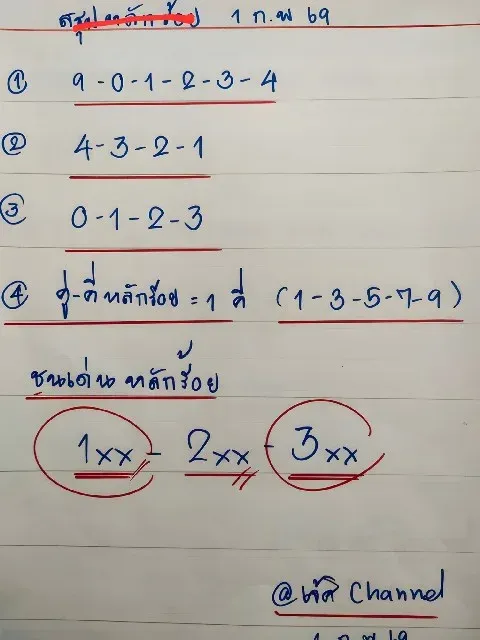 สรุปหลักร้อย 1 ก.พ 69
① 9-0-1-2-3-4
② 4-3-2-1
③ 0-1-2-3
④ คู่-คี่หลักร้อย = 1 คี่ (1-3-5-7-9)
ชนเด่นหลักร้อย
1xx - 2xx - 3xx
@ Channel
1 ก.พ 69